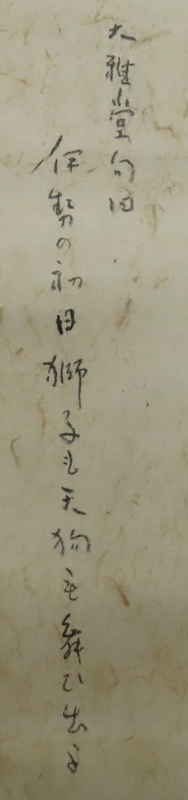 大雅堂句曰
伊勢の初日獅子も天狗も舞ひ出よ